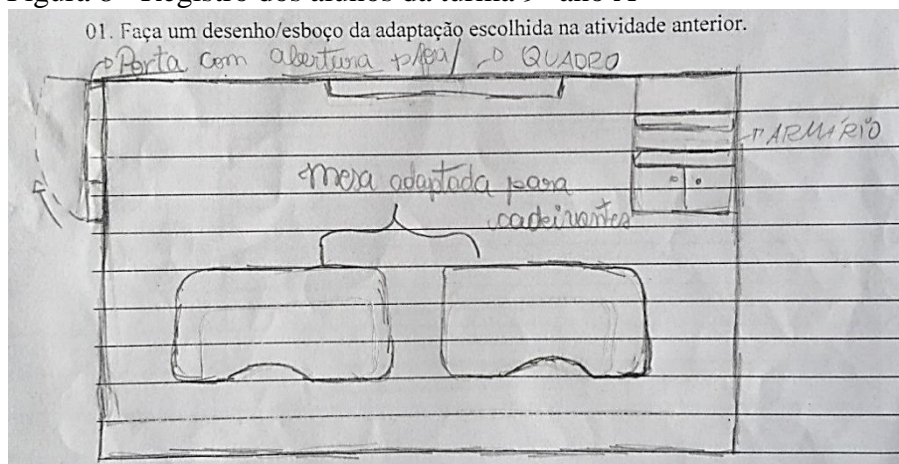 01. Faça um desenho/esboço da adaptação escolhida na atividade anterior.
Porta com abertura QUADRO
ARMÁRIO
mesa adaptada para
cadeirantes